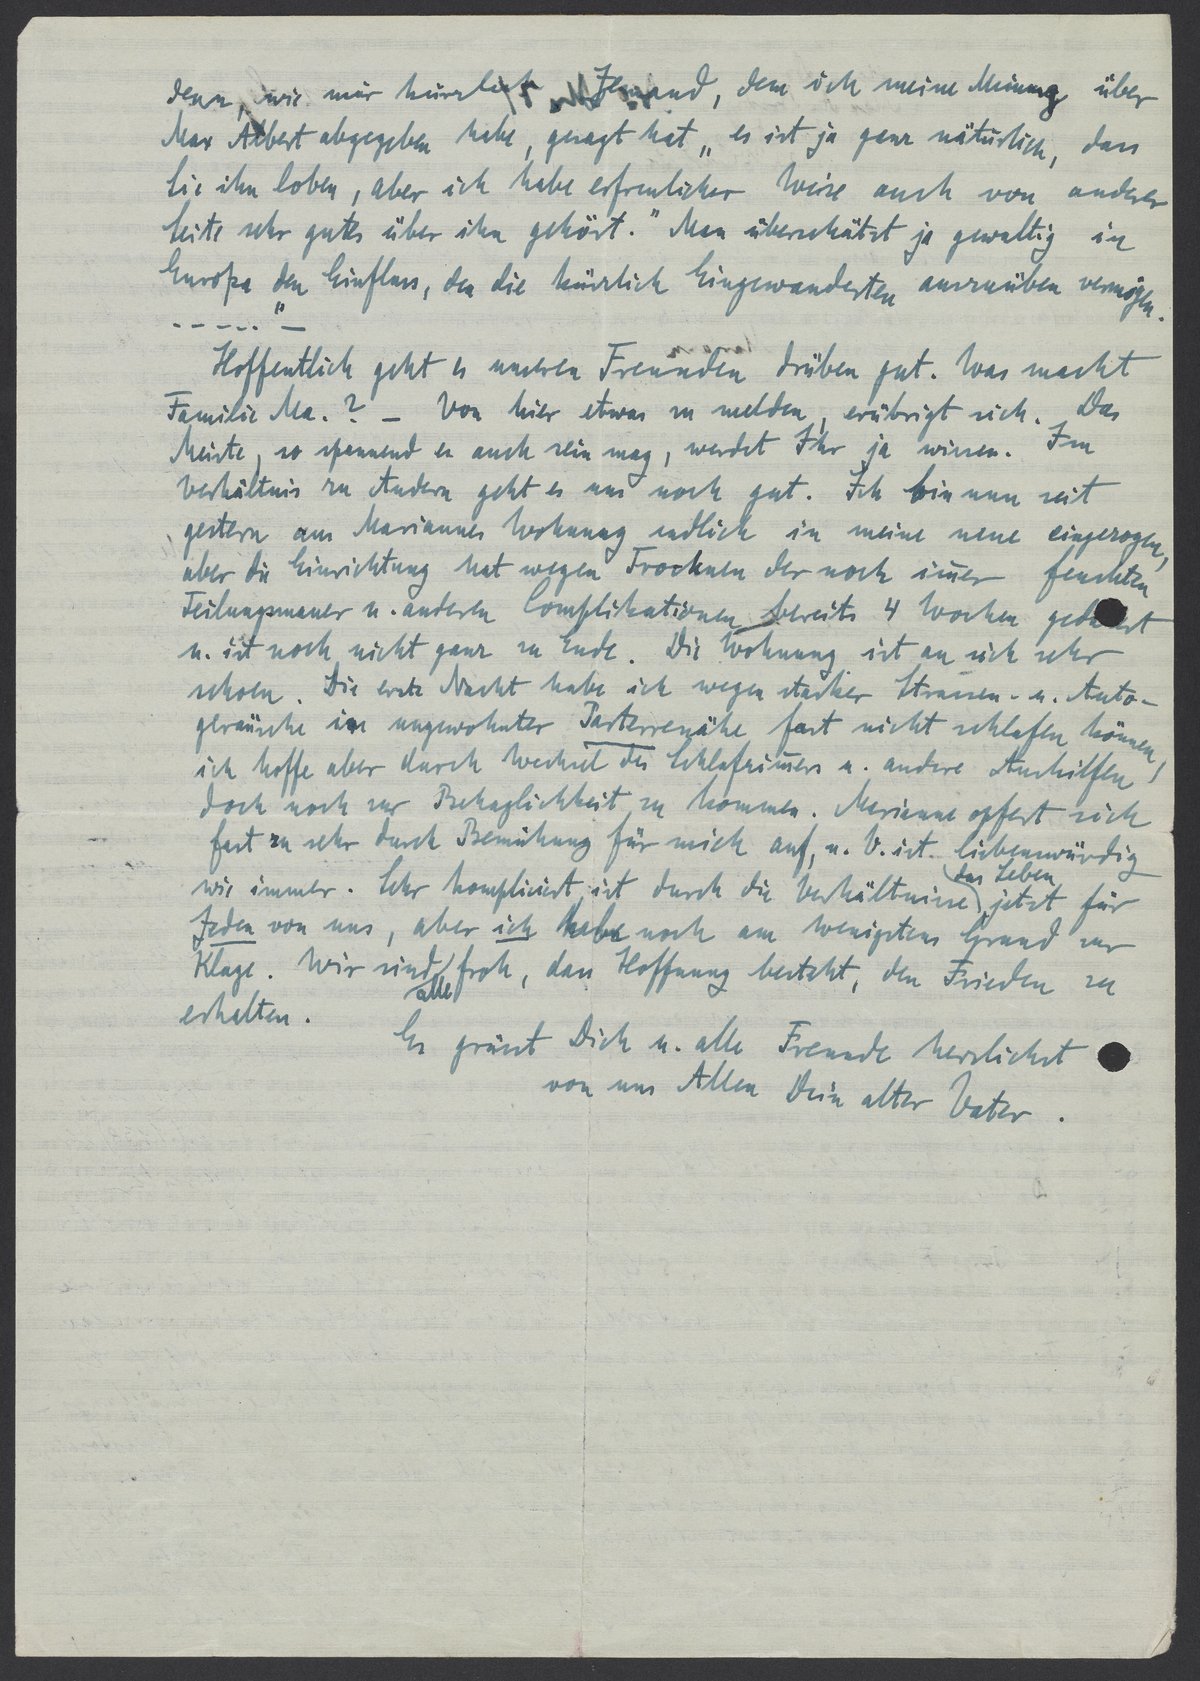 denn, wie mir kürzlich Jemand, dem ich meine Meinung über
Max Albert abgegeben habe, gesagt hat „es ist ja ganz natürlich, dass
Sie ihn loben, aber ich habe erfreulicher Weise auch von anderer
Seite sehr gutes über ihn gehört." Man überschätzt ja gewaltig in
Europa den Einfluss, den die kürzlich Eingewanderten auszuüben vermögen.
-----"—
Hoffentlich geht es unseren Freunden drüben gut. Was macht
Familie Ma.? — Von hier etwas zu melden, erübrigt sich. Das
Meiste, so spannend es auch sein mag, werdet Ihr ja wissen. Im
Verhältnis zu Andern geht es uns noch gut. Ich bin nun seit
gestern aus Mariannes Wohnung endlich in meine neue eingezogen,
aber die Einrichtung hat wegen Trocknen der noch im̄er feuchten
Teilungsmauer u. anderen Complikationen bereits 4 Wochen gedauert
u. ist noch nicht ganz zu Ende. Die Wohnung ist an sich sehr
schoen. Die erste Nacht habe ich wegen starker Strassen- u. Auto-
geräusche in ungewohnter Parterrenähe fast nicht schlafen können,
ich hoffe aber durch Wechsel des Schlafzim̄ers u. andere Aushilfen
doch noch zur Behaglichkeit zu kommen. Marianne opfert sich
fast zu sehr durch Bemühung für mich auf, u. V. ist liebenswürdig
wie immer. Sehr kompliciert ist durch die Verhältnisse das Leben jetzt für
Jeden von uns, aber ich habe noch am wenigstens Grund zur
Klage. Wir sind alle froh, dass Hoffnung besteht, den Frieden zu
erhalten.
Es grüsst Dich u. alle Freunde herzlichst
von uns Allen Dein alter Vater.